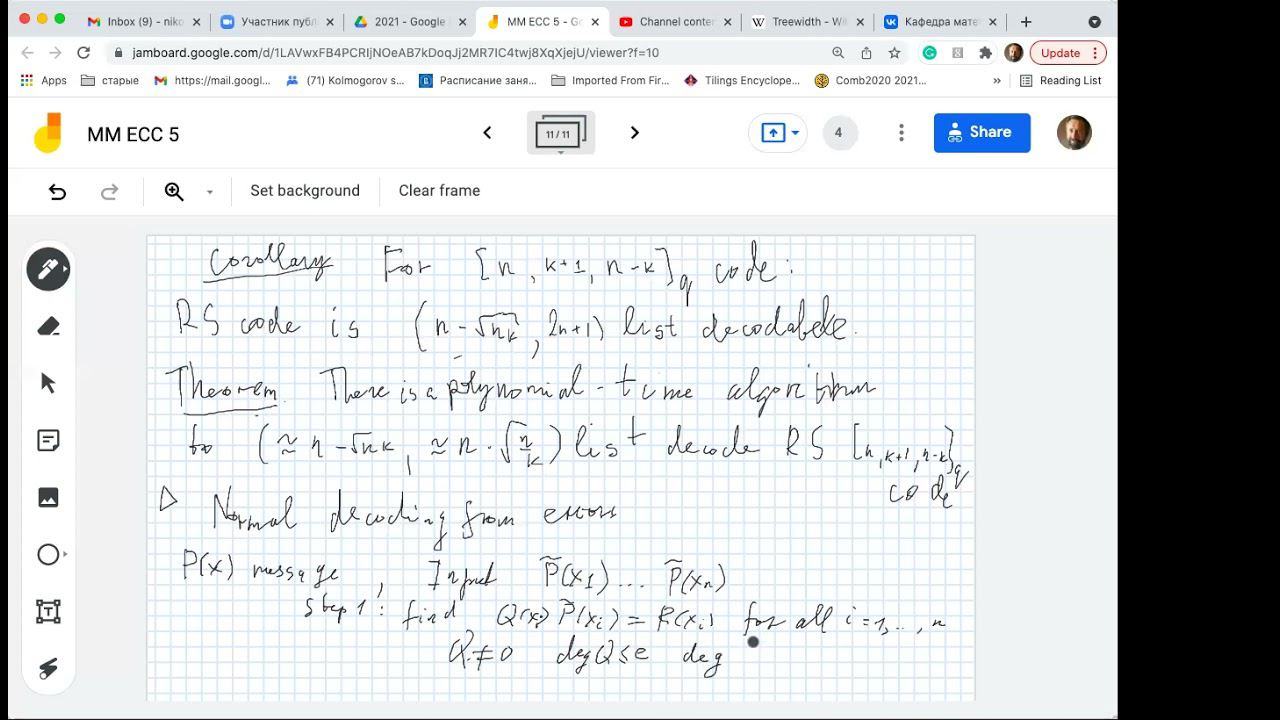 Inbox (9) - niko
Участник публ
2021 - Google
MM ECC 5 - Go
Channel conten
Treewidth - Wi
Кафедра мате
jamboard.google.com/d/1LAVwxFB4PCRIjNOeAB7kDoqJj2MR7IC4twj8XqXjejU/viewer?f=10
Update
Apps
старые
https://mail.googl...
(71) Kolmogorov s...
Расписание заня...
Imported From Fir...
Tilings Encyclope...
Comb2020 2021...
»
Reading List
MM ECC 5
11 / 11
4
Share
Set background
Clear frame
Corollary For [n, k+1, n-k]_q code:
RS code is (n - √nk, 2n+1) list decodable.
Theorem. There is a polynomial-time algorithm
to (≈ n - √nk, ≈ n · √(n/k)) list decode RS [n, k+1, n-k]_q
code
▷ Normal decoding from errors
P(x) message, Input P̃(x₁) ... P̃(xₙ)
step 1: find Q(xᵢ) P̃(xᵢ) = R(xᵢ) for all i=1,..., n
Q ≠ 0 deg Q ≤ e deg